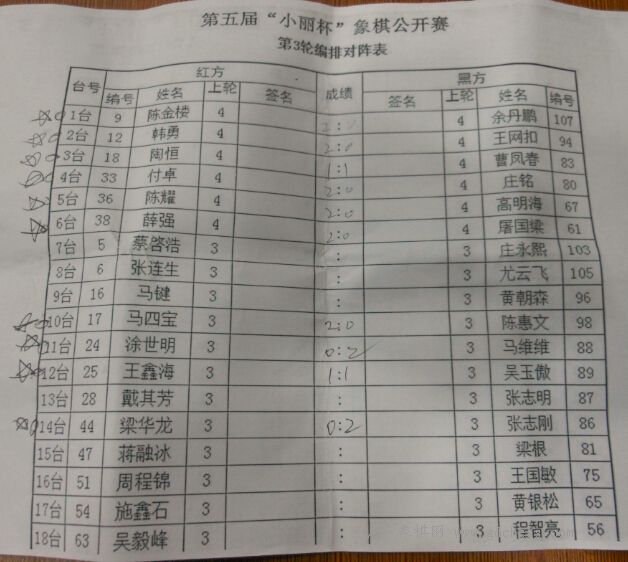 第五届“小丽杯”象棋公开赛
第3轮编排对阵表
台号 红方 成绩 黑方
编号 姓名 上轮 签名 签名 上轮 姓名 编号
1台 9 陈金楼 4 2:0 4 余丹鹏 107
2台 12 韩勇 4 2:0 4 王网扣 94
3台 18 陶恒 4 1:1 4 曹凤春 83
4台 33 付卓 4 2:0 4 庄铭 80
5台 36 陈耀 4 2:0 4 高明海 67
6台 38 薛强 4 2:0 4 屠国梁 61
7台 5 蔡啓浩 3 : 3 庄永熙 103
8台 6 张连生 3 : 3 尤云飞 105
9台 16 马键 3 : 3 黄朝森 96
10台 17 马四宝 3 2:0 3 陈惠文 98
11台 24 涂世明 3 0:2 3 马维维 88
12台 25 王鑫海 3 1:1 3 吴玉傲 89
13台 28 戴其芳 3 : 3 张志明 87
14台 44 梁华龙 3 0:2 3 张志刚 86
15台 47 蒋融冰 3 : 3 梁根 81
16台 51 周程锦 3 : 3 王国敏 75
17台 54 施鑫石 3 : 3 黄银松 65
18台 63 吴毅峰 3 : 3 程智亮 56